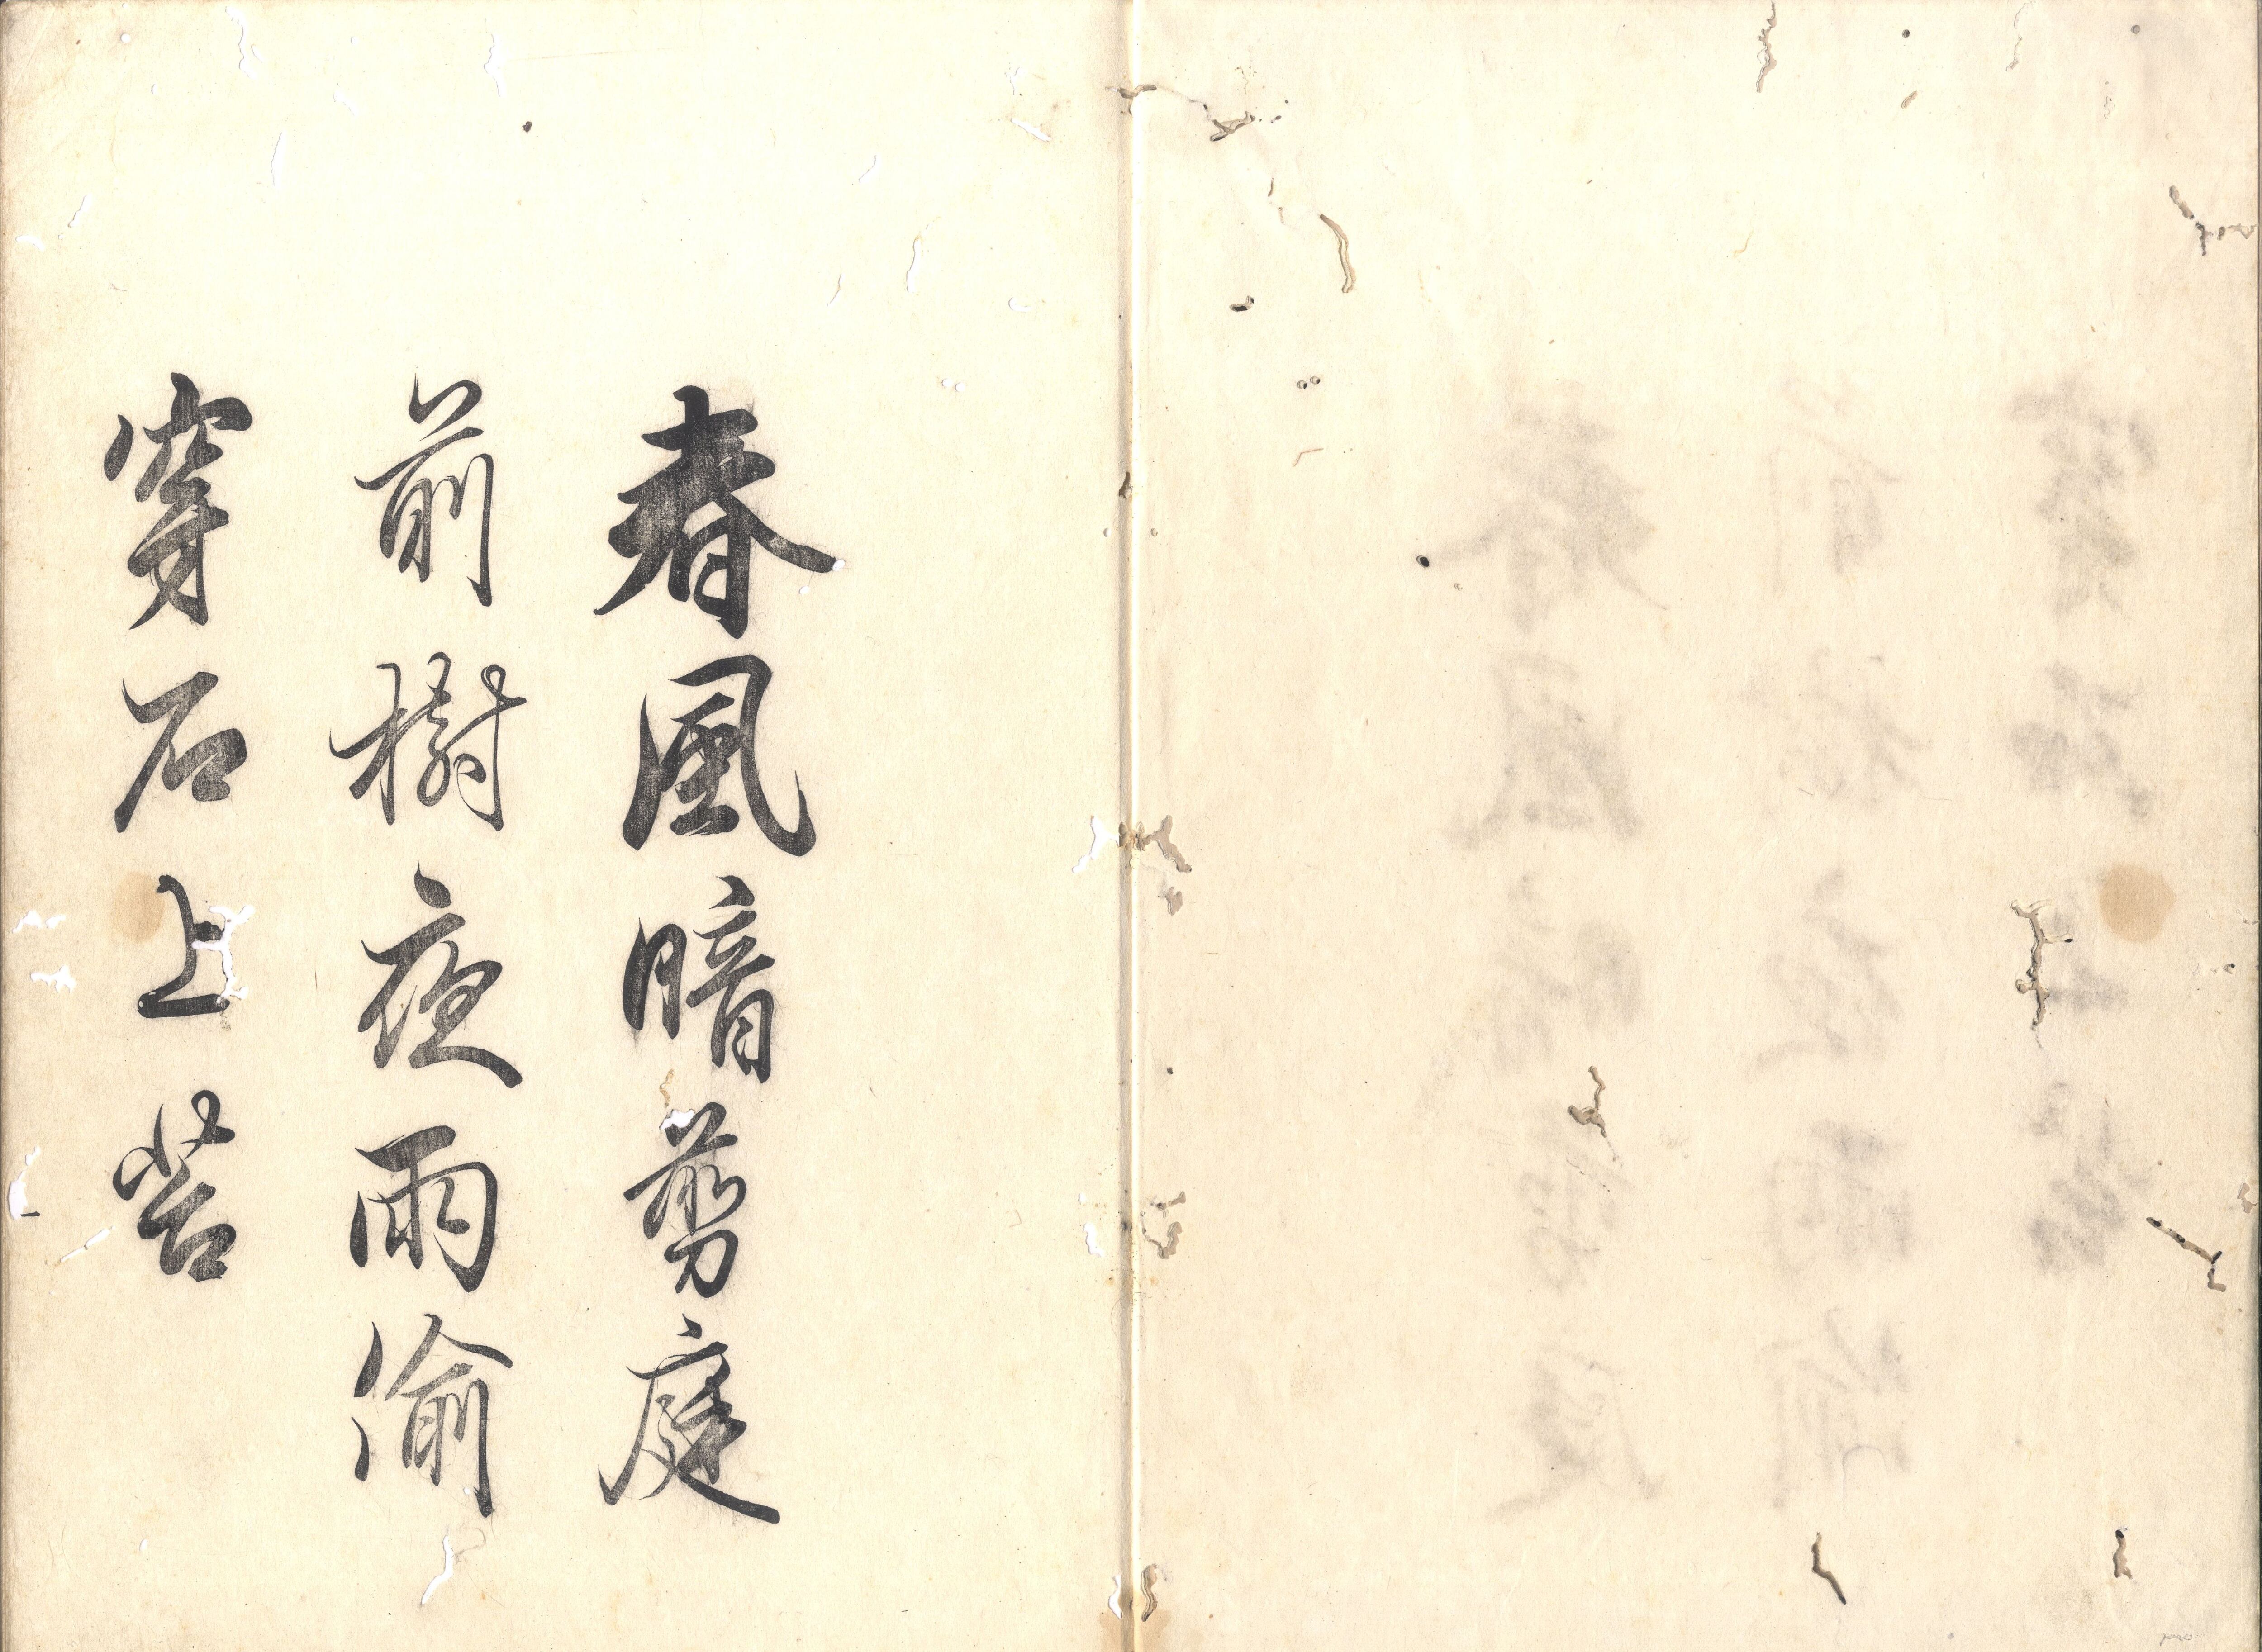 春風暗剪庭
前樹夜雨偸
穿石上苔